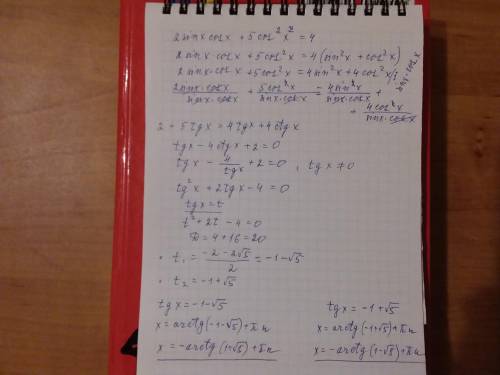 2 sinx cosx + 5cos²x = 4
2 sinx cosx + 5cos²x = 4(sin²x + cos²x)
2 sinx·cosx + 5cos²x = 4sin²x + 4cos²x /: sinx·cosx
2sinx·cosx/sinx·cosx + 5cos²x/sinx·cosx = 4sin²x/sinx·cosx +
+ 4cos²x/sinx·cosx
2 + 5tgx = 4tgx + 4ctgx
tgx - 4ctgx + 2 = 0
tgx - 4/tgx + 2 = 0, tgx ≠ 0
tg²x + 2tgx - 4 = 0
tgx = t
t² + 2t - 4 = 0
D = 4 + 16 = 20
• t₁ = (-2 - 2√5)/2 = -1-√5
• t₂ = -1+√5
tgx = -1-√5
x = arctg(-1-√5) + πn
x = -arctg(1+√5) + πn
tgx = -1+√5
x = arctg(-1+√5) + πn
x = -arctg(1-√5) + πn